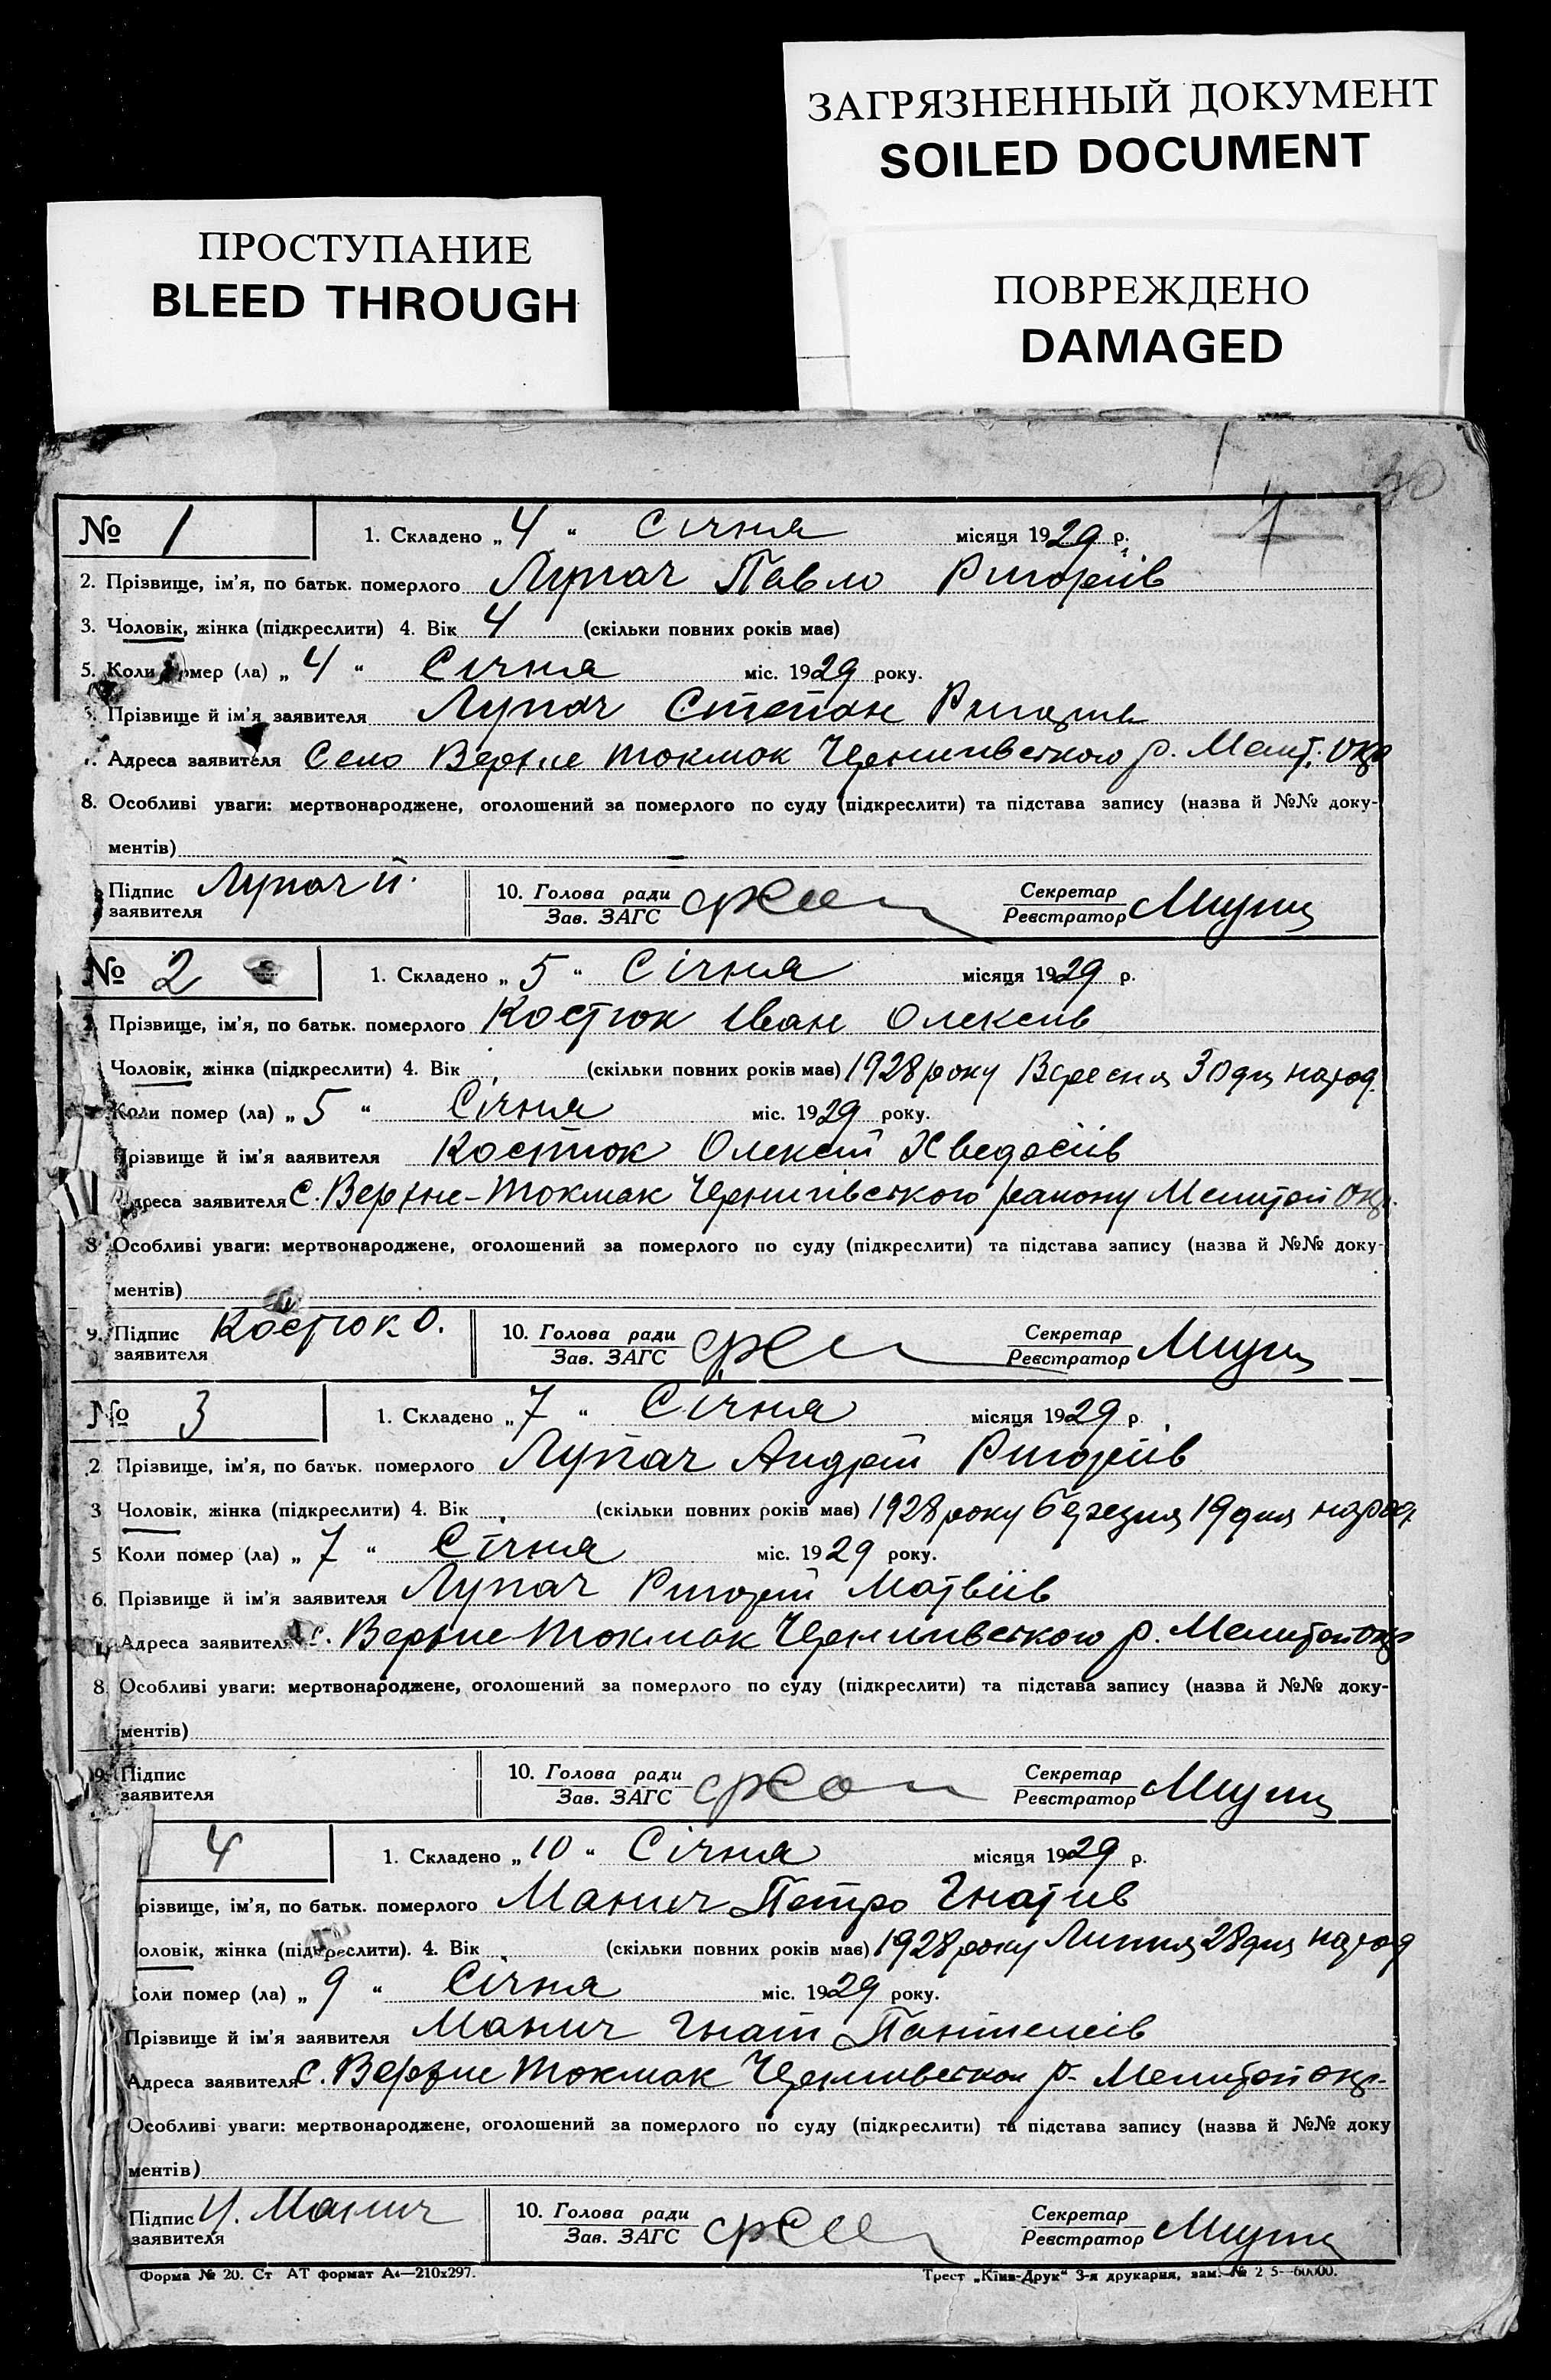 ЗАГРЯЗНЕННЫЙ ДОКУМЕНТ
SOILED DOCUMENT
ПРОСТУПАНИЕ
BLEED THROUGH
ПОВРЕЖДЕНО
DAMAGED
№ 1 1. Складено „ 4 “ Січня місяця 1929 р.
2. Прізвище, ім'я, по батьк. померлого Лупач Павло Ригоріїв
3. Чоловік, жінка (підкреслити) 4. Вік 4 (скільки повних років має)
5. Коли помер (ла) „ 4 “ Січня міс. 1929 року.
Прізвище й ім'я заявителя Лупач Степан
Адреса заявителя Село Верхне Токмок Чернигівського р. Меліт. Окр
8. Особливі уваги: мертвонароджене, оголошений за померлого по суду (підкреслити) та підстава запису (назва й №№ доку-
ментів)
Підпис заявителя Лупач 10. Голова ради Зав. ЗАГС Секретар Реєстратор
№ 2 1. Складено „ 5 “ Січня місяця 1929 р.
Прізвище, ім'я, по батьк. померлого Костюк Іван Олексіїв
Чоловік, жінка (підкреслити) 4. Вік (скільки повних років має) 1928 року Вересня 30 дня народ.
Коли помер (ла) „ 5 “ Січня міс. 1929 року.
Прізвище й ім'я заявителя Костюк Олексій Хведосіів
Адреса заявителя С. Верхне-Токмак Чернигівського району Меlітоп Окр.
8 Особливі уваги: мертвонароджене, оголошений за померлого по суду (підкреслити) та підстава запису (назва й №№ доку-
ментів)
9. Підпис заявителя Костюк О. 10. Голова ради Зав. ЗАГС Секретар Реєстратор
№ 3 1. Складено „ 7 “ Січня місяця 1929 р.
2 Прізвище, ім'я, по батьк. померлого Лупач Андрій Ригоріїв
3 Чоловік, жінка (підкреслити) 4. Вік (скільки повних років має) 1928 року березня 19 дня народ.
5 Коли помер (ла) „ 7 “ Січня міс. 1929 року.
6. Прізвище й ім'я заявителя Лупач Ригорій Матвіїв
Адреса заявителя С. Верхне Токмок Чернигівського р. Мелітоп окр
8. Особливі уваги: мертвонароджене, оголошений за померлого по суду (підкреслити) та підстава запису (назва й №№ доку-
ментів)
9. Підпис заявителя 10. Голова ради Зав. ЗАГС Секретар Реєстратор
4 1. Складено „ 10 “ Січня місяця 1929 р.
різвище, ім'я, по батьк. померлого Манич Петро Гнатів
оловік, жінка (підкреслити). 4. Вік (скільки повних років має) 1928 року Липня 28 дня народ
Коли помер (ла) „ 9 “ Січня міс. 1929 року.
Прізвище й ім'я заявителя Манич Гнат Пантелеїв
Адреса заявителя С. Верхне Токмак Чернигівськ р. Мелітоп окр.
Особливі уваги: мертвонароджене, оголошений за померлого по суду (підкреслити) та підстава запису (назва й №№ доку
ментів)
Підпис заявителя Манич 10. Голова ради Зав. ЗАГС Секретар Реєстратор
Форма № 20. Ст АТ формат А4—210x297. Трест „Київ-Друк“ 3-я друкарня, зам. №